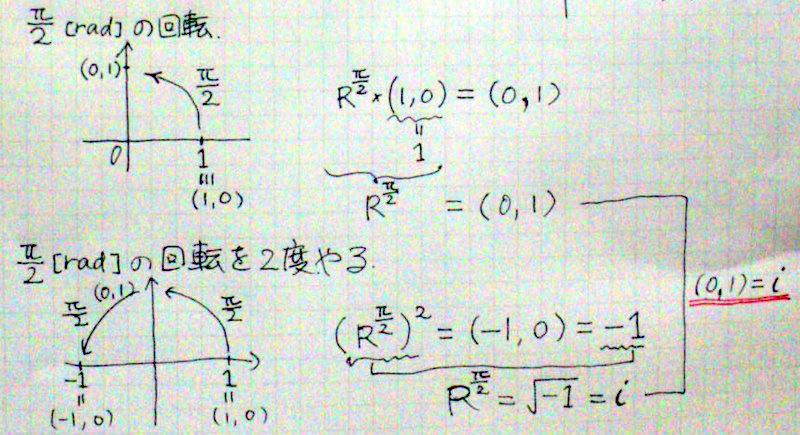 π/2 [rad] の回転.
(0,1)
π/2
0
1
≡
(1,0)
R^{π/2} × (1,0) = (0,1)
=
1
R^{π/2} = (0,1)
π/2 [rad] の回転を2度やる.
(0,1)
π/2
π/2
-1
1
=
=
(-1,0)
(1,0)
(R^{π/2})^2 = (-1,0) = -1
R^{π/2} = √-1 = i
(0,1)=i